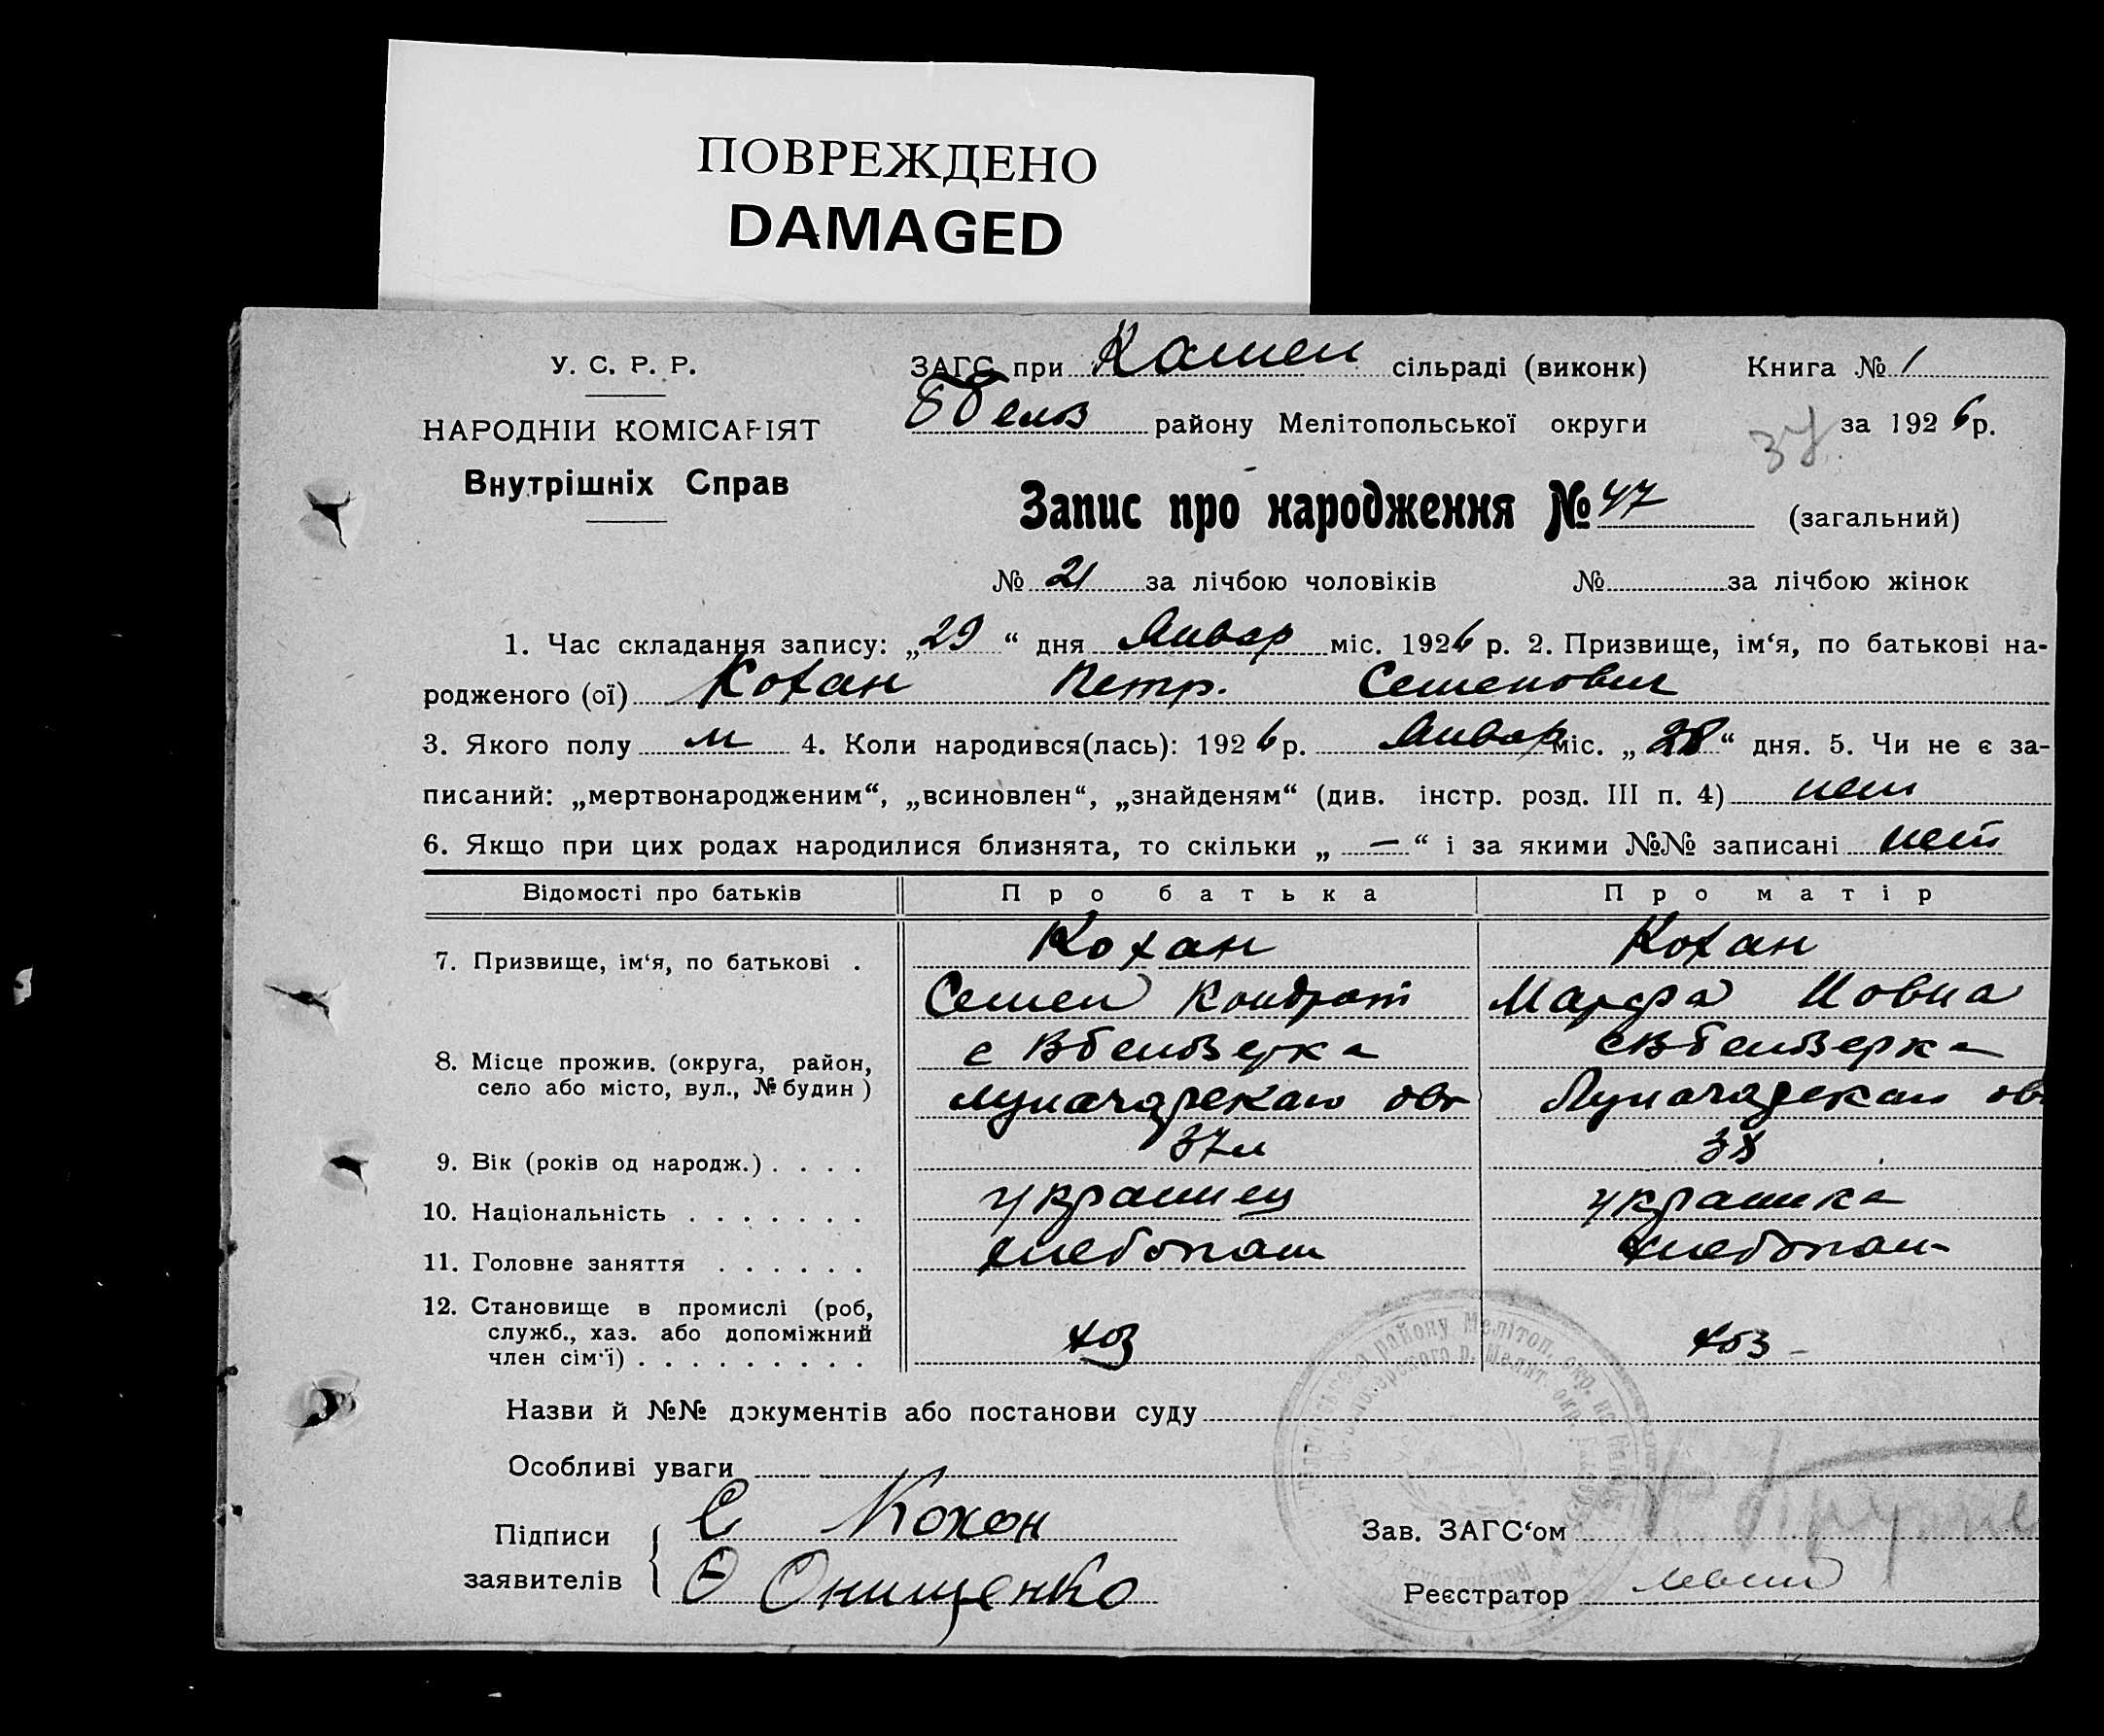 ПОВРЕЖДЕНО
DAMAGED
У. С. Р. Р.
НАРОДНІЙ КОМІСАРІЯТ
Внутрішніх Справ
ЗАГС при Камен сільраді (виконк)
Книга № 1
району Мелітопольської округи
37
за 1926 р.
Запис про народження № 47 (загальний)
№ 21 за лічбою чоловіків № за лічбою жінок
1. Час складання запису: „29“ дня Январ міс. 1926 р. 2. Призвище, ім‘я, по батькові на-
родженого (ої) Кохан Петр. Семенович
3. Якого полу м 4. Коли народився(лась): 1926 р. Январ міс. „28“ дня. 5. Чи не є за-
писаний: „мертвонародженим“, „всиновлен“, „знайденям“ (див. інстр. розд. III п. 4) нет
6. Якщо при цих родах народилися близнята, то скільки „ — “ і за якими №№ записані нет
Відомості про батьків Про батька Про матір
7. Призвище, ім‘я, по батькові . Кохан Кохан
Семен Кондрат Марфа Иовна
8. Місце прожив. (округа, район,
село або місто, вул., № будин)
9. Вік (років од народж.) . . . . 37 л 38
10. Національність . . . . . . . украинец украинка
11. Головне заняття . . . . . . хлебопаш хлебопаш
12. Становище в промислі (роб,
служб., хаз. або допоміжний
член сім‘ї) . . . . . . . . . хоз хоз
Назви й №№ документів або постанови суду
Особливі уваги
Підписи
заявителів
С Кохон
Ѳ Онищенко
Зав. ЗАГС‘ом
Реєстратор
району Мелітоп. окр.